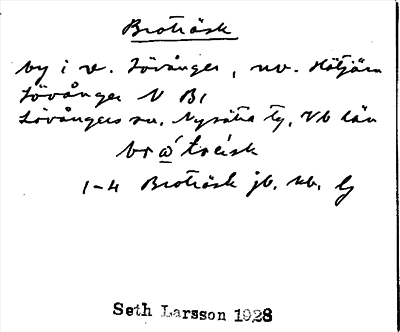 Broträsk
by i v. Lövånger, nv. Hötjärn
Lövånger V B1
Lövångers sn, Nysätra tg, Vb län
1-4 Broträsk jb.
Seth Larsson 1928